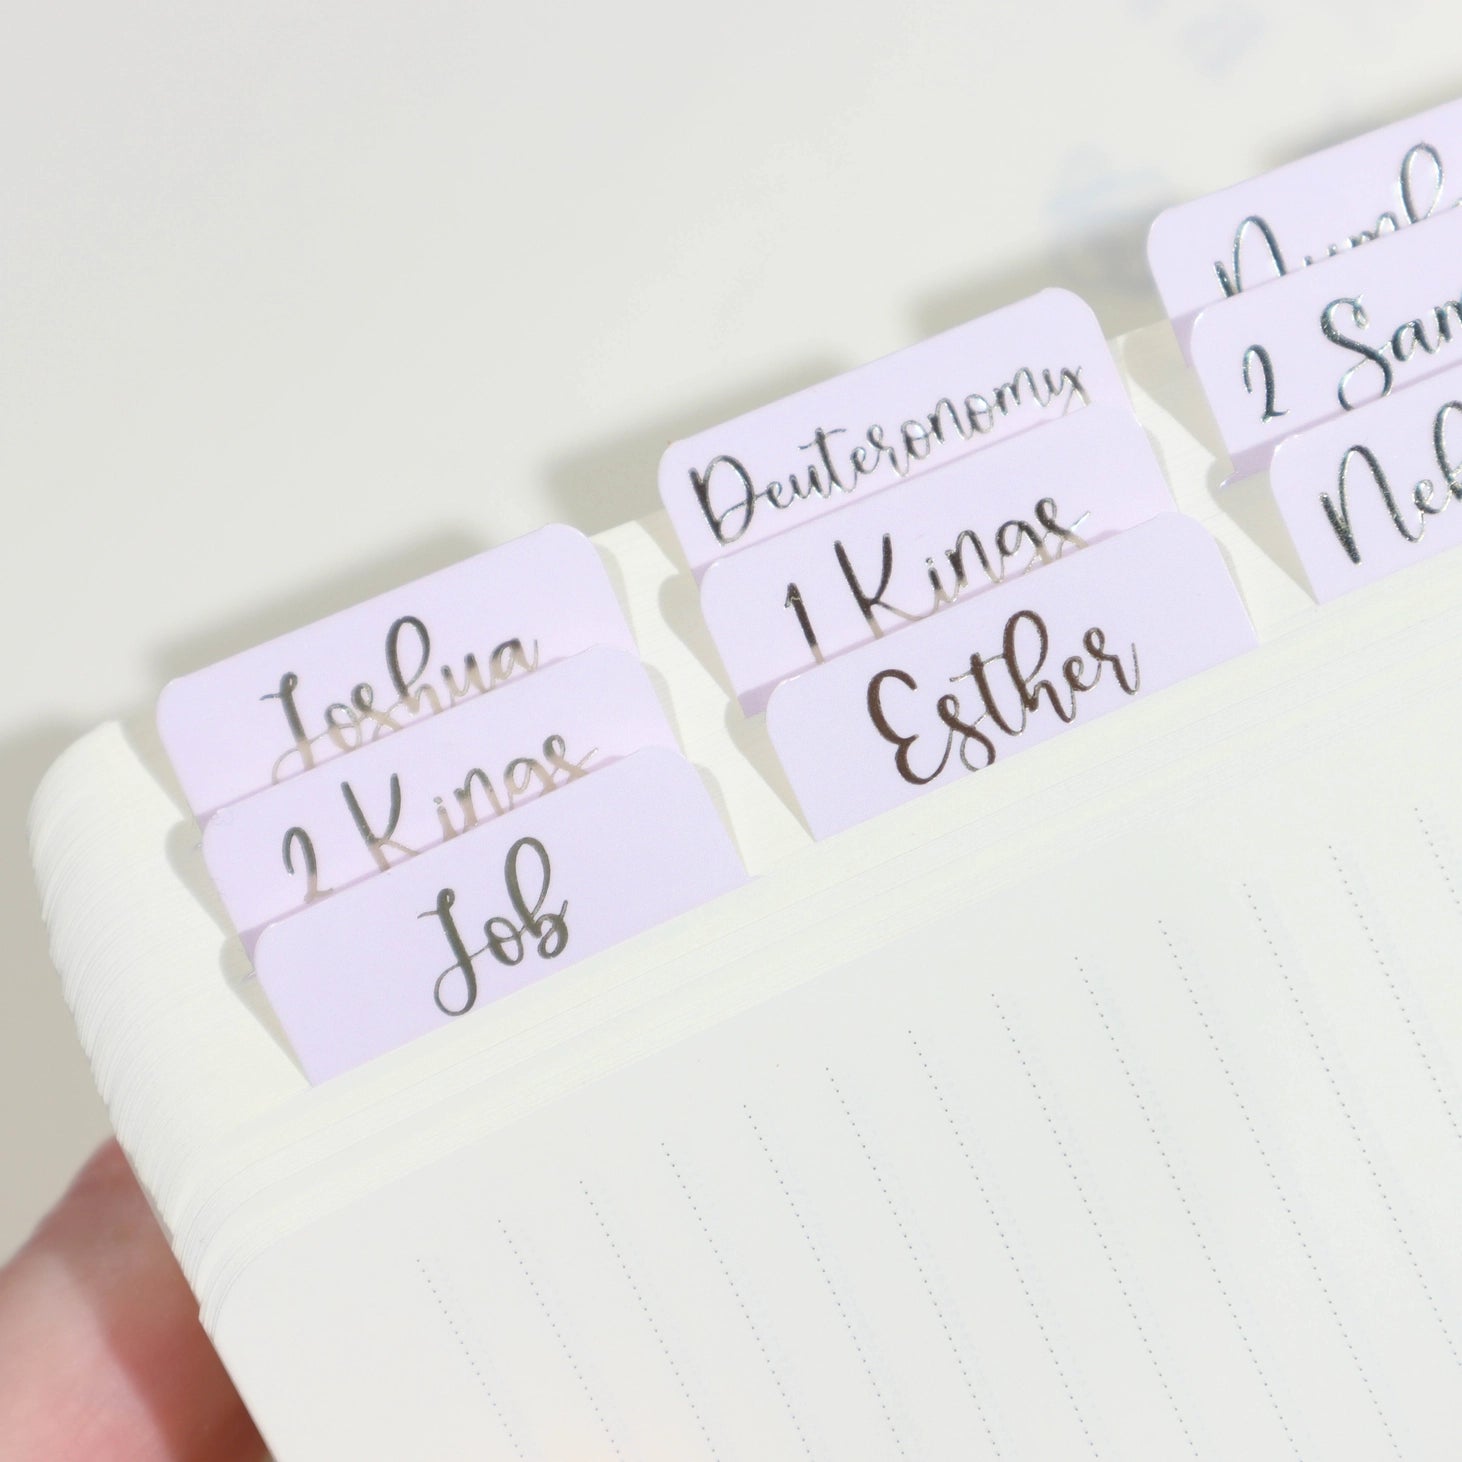 Joshua
2 Kings
Job
Deuteronomy
1 Kings
Esther
Numb
2 Sam
Neh